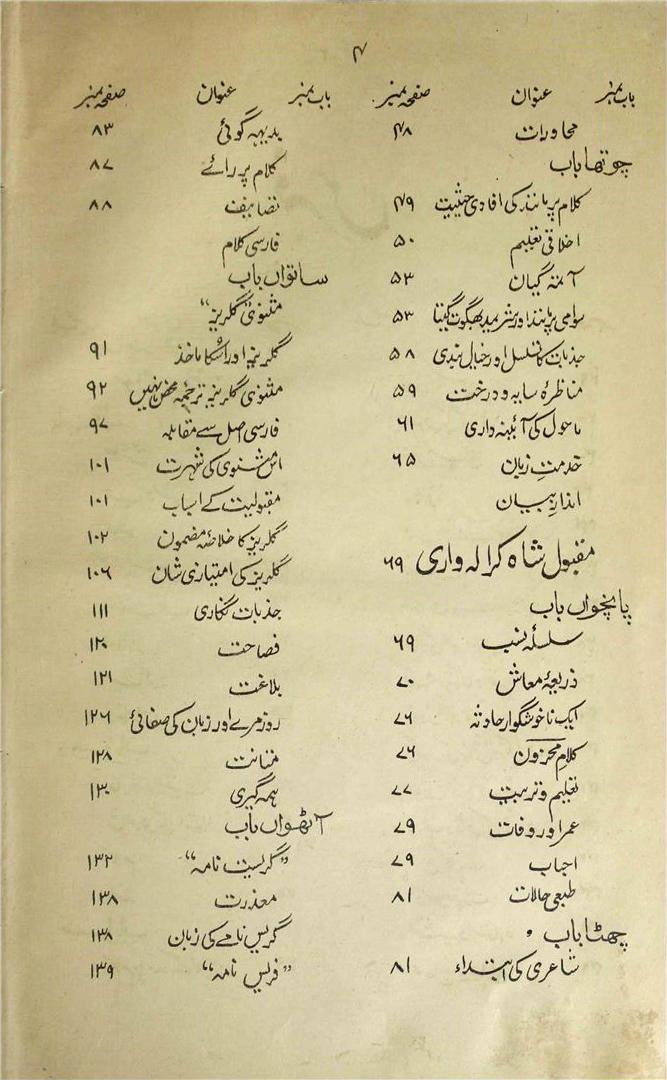 ۴
باب نمبر عنوان صفحہ نمبر
محاورات ۴۸
چوتھا باب
کلام پرمانند کی افادی حیثیت ۴۹
اخلاقی تعلیم ۵۰
آتمہ گیان ۵۳
سوامی پرمانند اور شریمد بھگوت گیتا ۵۳
جذبات کا تسلسل اور خیال بندی ۵۸
مناظرۂ سایہ و درخت ۵۹
ماحول کی آئینہ داری ۶۱
خدمتِ زبان ۶۵
اندازِ بیان
مقبول شاہ کرالہ واری ۶۹
پانچواں باب
سلسلۂ نسب ۶۹
ذریعۂ معاش ۷۰
ایک ناخوشگوار حادثہ ۷۶
کلامِ محزون ۷۶
تعلیم و تربیت ۷۷
عمر اور وفات ۷۹
احباب ۷۹
طبعی حالات ۸۱
چھٹا باب
شاعری کی ابتداء ۸۱
باب نمبر عنوان صفحہ نمبر
بدیہہ گوئی ۸۳
کلام پر رائے ۸۷
تصانیف ۸۸
فارسی کلام
ساتواں باب
مثنوی گلریز"
گلریز اور اسکا ماخذ ۹۱
مثنوی گلریز ترجمہ محض نہیں ۹۲
فارسی اصل سے مقابلہ ۹۷
اس مثنوی کی شہرت ۱۰۱
مقبولیت کے اسباب ۱۰۱
گلریز کا خلاصۂ مضمون ۱۰۲
گلریز کی امتیازی شان ۱۰۶
جذبات نگاری ۱۱۱
فصاحت ۱۲۰
بلاغت ۱۲۱
روزمرے اور زبان کی صفائی ۱۲۶
متانت ۱۲۸
ہمہ گیری ۱۳۰
آٹھواں باب
"گریست نامہ" ۱۳۲
معذرت ۱۳۸
گریس نامے کی زبان ۱۳۸
"گریس نامہ" ۱۳۹